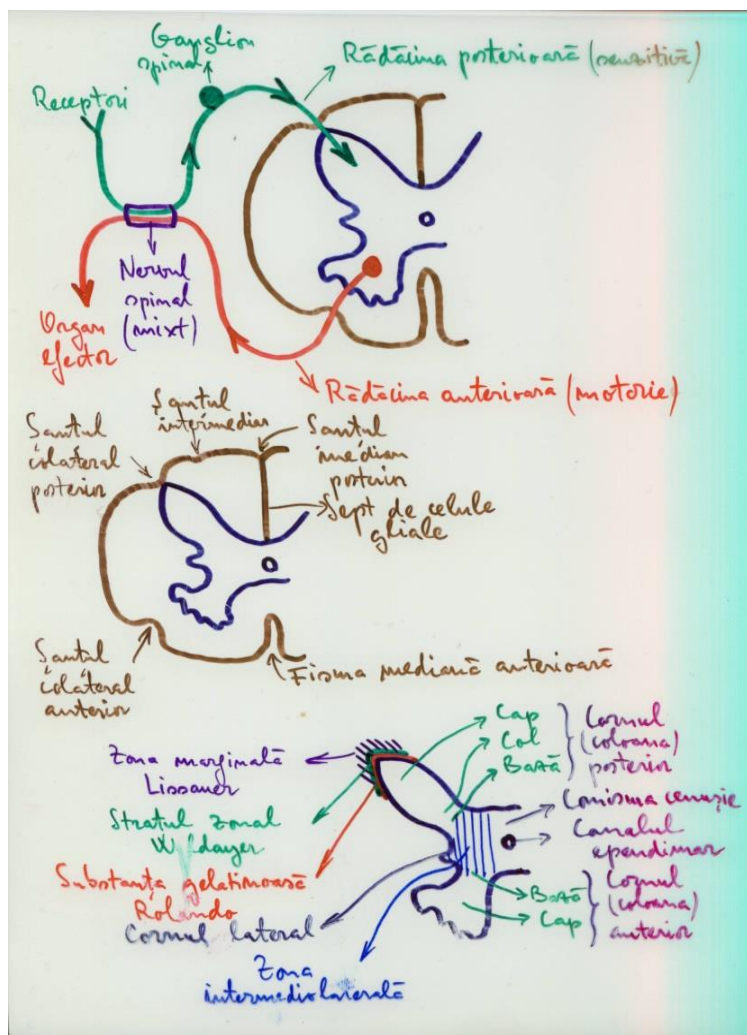 Ganglion
spinal
Rădăcina posterioară (senzitivă)
Receptori
Nervul
spinal
(mixt)
Organ
efector
Rădăcina anterioară (motorie)
Șanțul
intermediar
Șanțul
colateral
posterior
Șanțul
median
posterior
Sept de celule
gliale
Șanțul
colateral
anterior
Fisura mediană anterioară
Zona marginală
Lissauer
Stratul zonal
Waldayer
Substanța gelatinoasă
Rolando
Cornul lateral
Zona
intermediolaterală
Cap
Col
Bază
Cornul
(coloana)
posterior
Comisura cenușie
Canalul
ependimar
Bază
Cap
Cornul
(coloana)
anterior